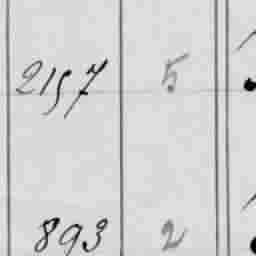 2157 5
893 2